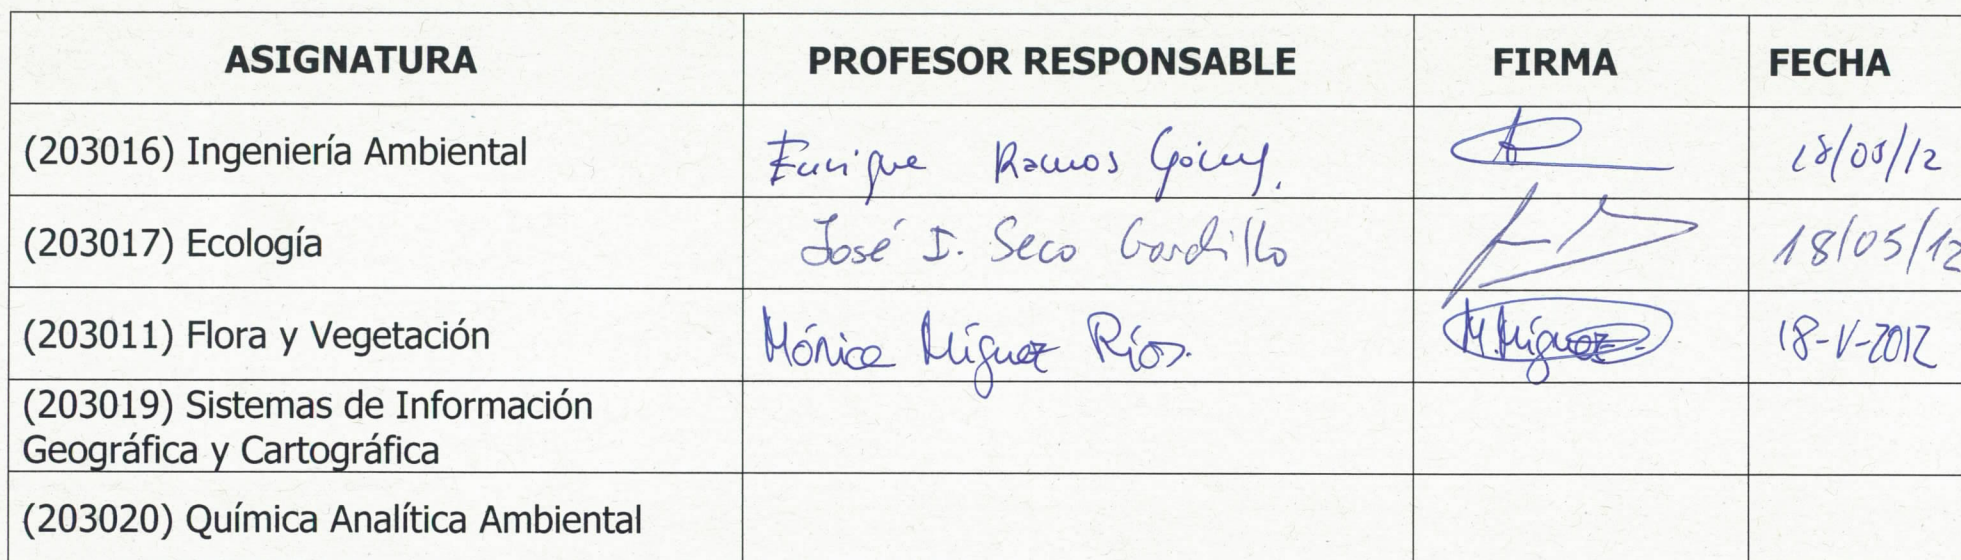 ASIGNATURA PROFESOR RESPONSABLE FIRMA FECHA
(203016) Ingeniería Ambiental Enrique Ramos Gómez. 18/05/12
(203017) Ecología José I. Seco Gordillo 18/05/12
(203011) Flora y Vegetación Mónica Míguez Ríos. M.Míguez 18-V-2012
(203019) Sistemas de Información
Geográfica y Cartográfica
(203020) Química Analítica Ambiental